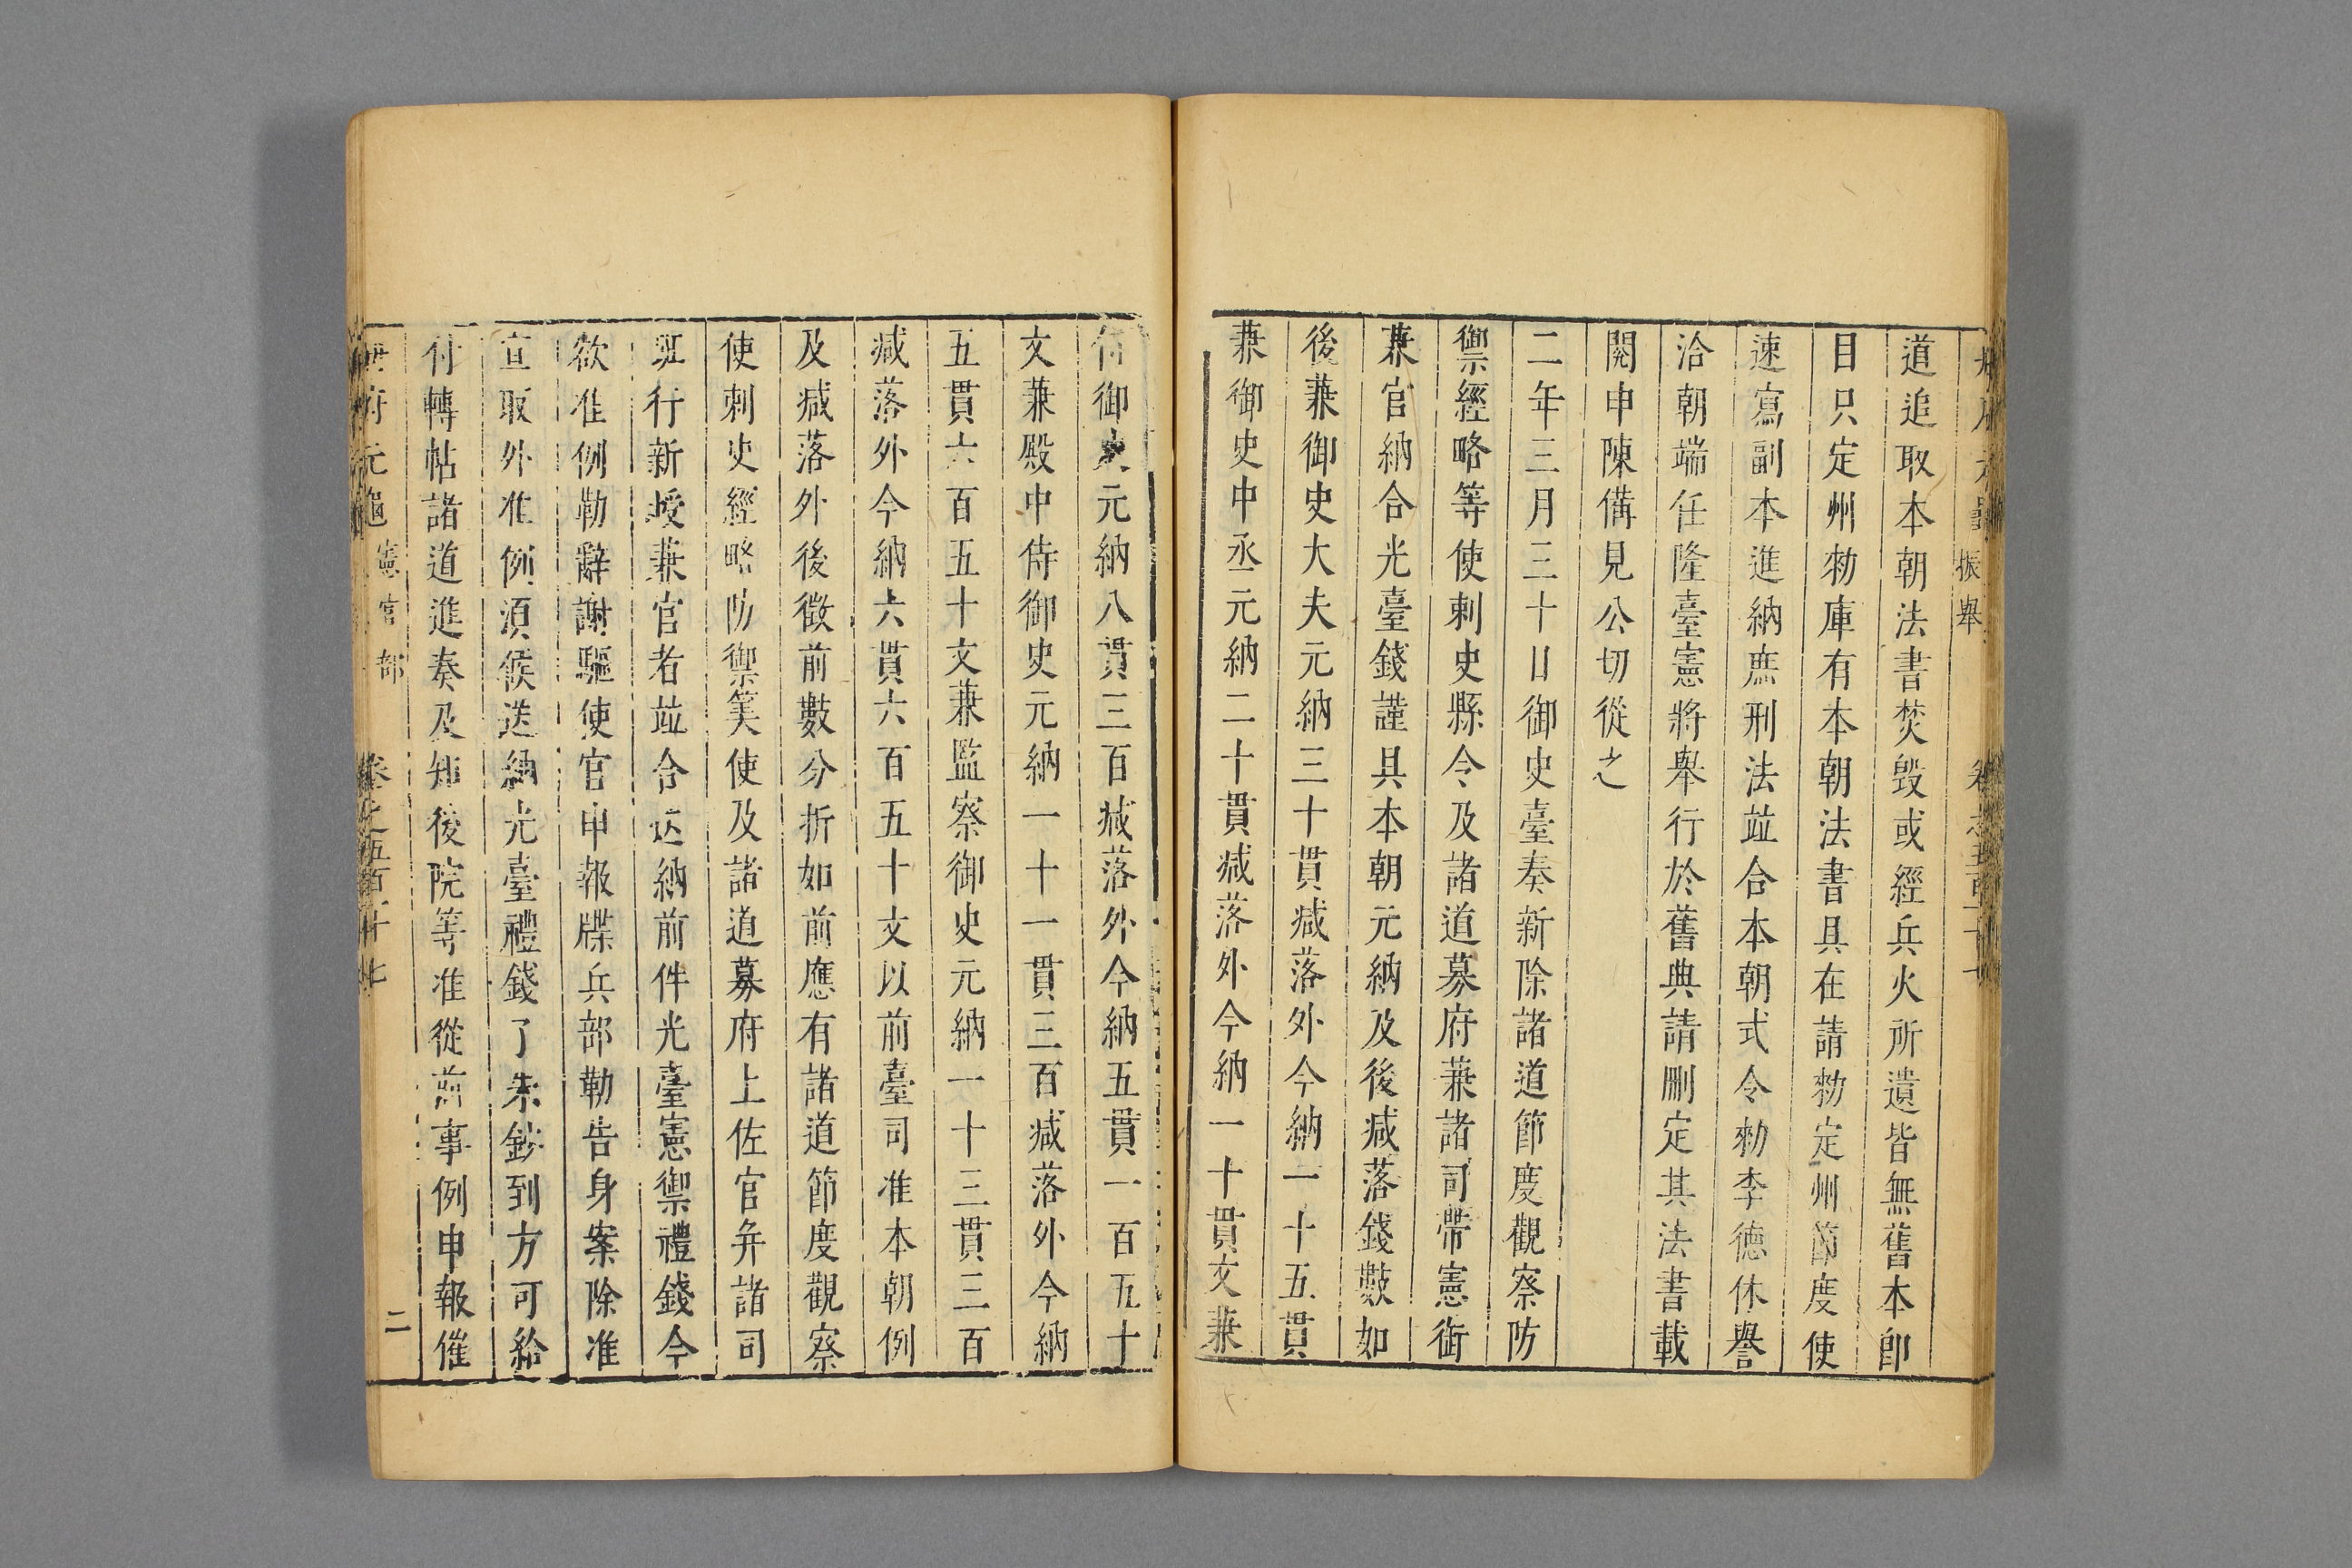 振舉
道追取本朝法書焚毀或經兵火所遺皆無舊本卽
目只定州勑庫有本朝法書具在請勑定州節度使
速寫副本進納庶刑法並合本朝式令勑李德休譽
洽朝端任隆臺憲將舉行於舊典請刪定其法書載
閱申陳備見公切從之
二年三月三十日御史臺奏新除諸道節度觀察防
禦經略等使刺史縣令及諸道募府兼諸司帶憲銜
兼官納合光臺錢謹具本朝元納及後減落錢數如
後兼御史大夫元納三十貫減落外今納一十五貫
兼御史中丞元納二十貫減落外今納一十貫文兼
侍御史元納八貫三百減落外今納五貫一百五十
文兼殿中侍御史元納一十一貫三百減落外今納
五貫六百五十文兼監察御史元納一十三貫三百
減落外今納六貫六百五十文以前臺司准本朝例
及減落外後徵前數分折如前應有諸道節度觀察
使刺史經略防禦等使及諸道募府上佐官并諸司
班行新授兼官者並合送納前件光臺憲禦禮錢今
欲准例勒辭謝驅使官申報牒兵部勒告身案除准
宣取外准例須候送納光臺禮錢了朱鈔到方可給
付轉帖諸道進奏及知後院等准從前事例申報催
冊府元龜 憲官部 卷之五百十七 二